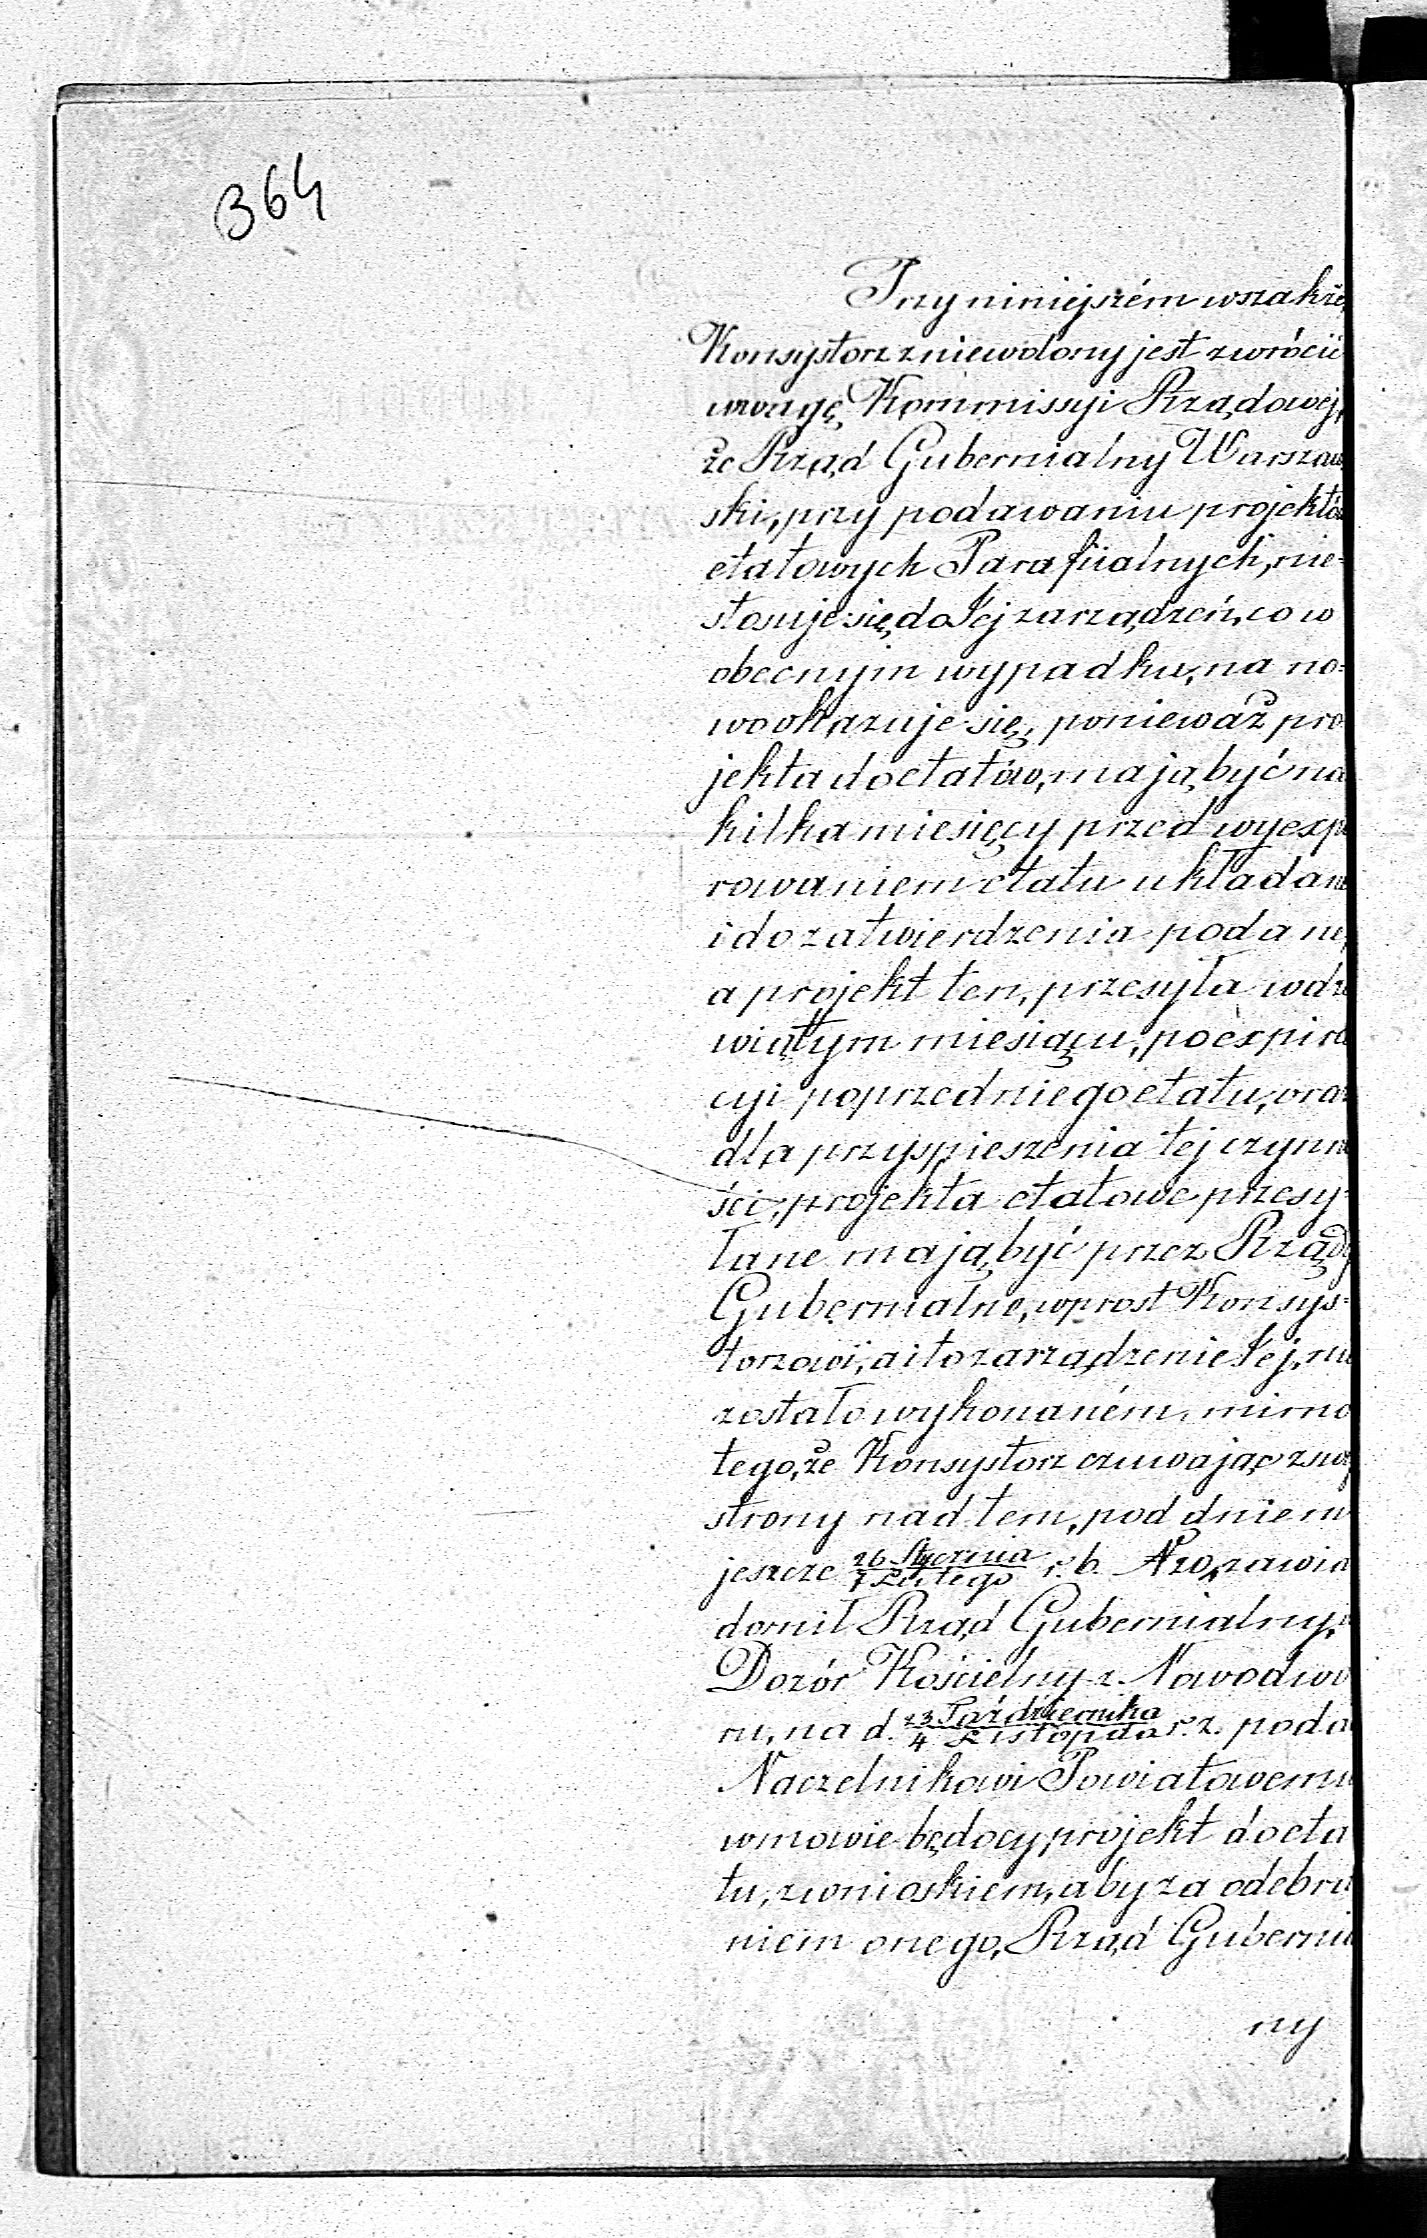 364
Przy niniejszém wszakże,
Konsystorz zniewolony jest zwrócić
uwagę Kommissyi Rządowej,
że Rząd Gubernialny Warszaw
ski, przy podawaniu projektów
etatowych Parafiialnych, nie-
stosuje się do Jej zarządzeń, co w
obecnym wypadku, na no=
wo okazuje się, ponieważ pro
jekta do etatów, mają być na
kilka miesięcy przed wyexpi
rowaniem etatu układane
i do zatwierdzenia podane,
a projekt ten, przesyła w dzie
wiątym miesiącu, po expira
cyi poprzedniego etatu, oraz
dla przyspieszenia tej czynno
ści, projekta etatowe przesy=
łane mają być przez Rządy
Gubernialne, wprost Konsys=
torzowi, a i to zarządzenie Jej, nie
zostało wykonaném, mimo
tego, że Konsystorz czuwając z swej
strony nad tem, pod dniem
jeszcze 26 Stycznia / 7 Lutego r. b. zawia
domił Rząd Gubernialny,
Dozór Kościelny z Nowodwo
ru, na d. 23 Października / 4 Listopada r. z. podał
Naczelnikowi Powiatowemu
w mowie będący projekt do eta
tu, z wnioskiem, aby za odebra
niem onego, Rząd Gubernial
ny